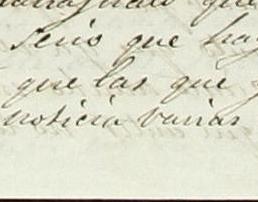 que
serio que hay
que las que
noticia varias